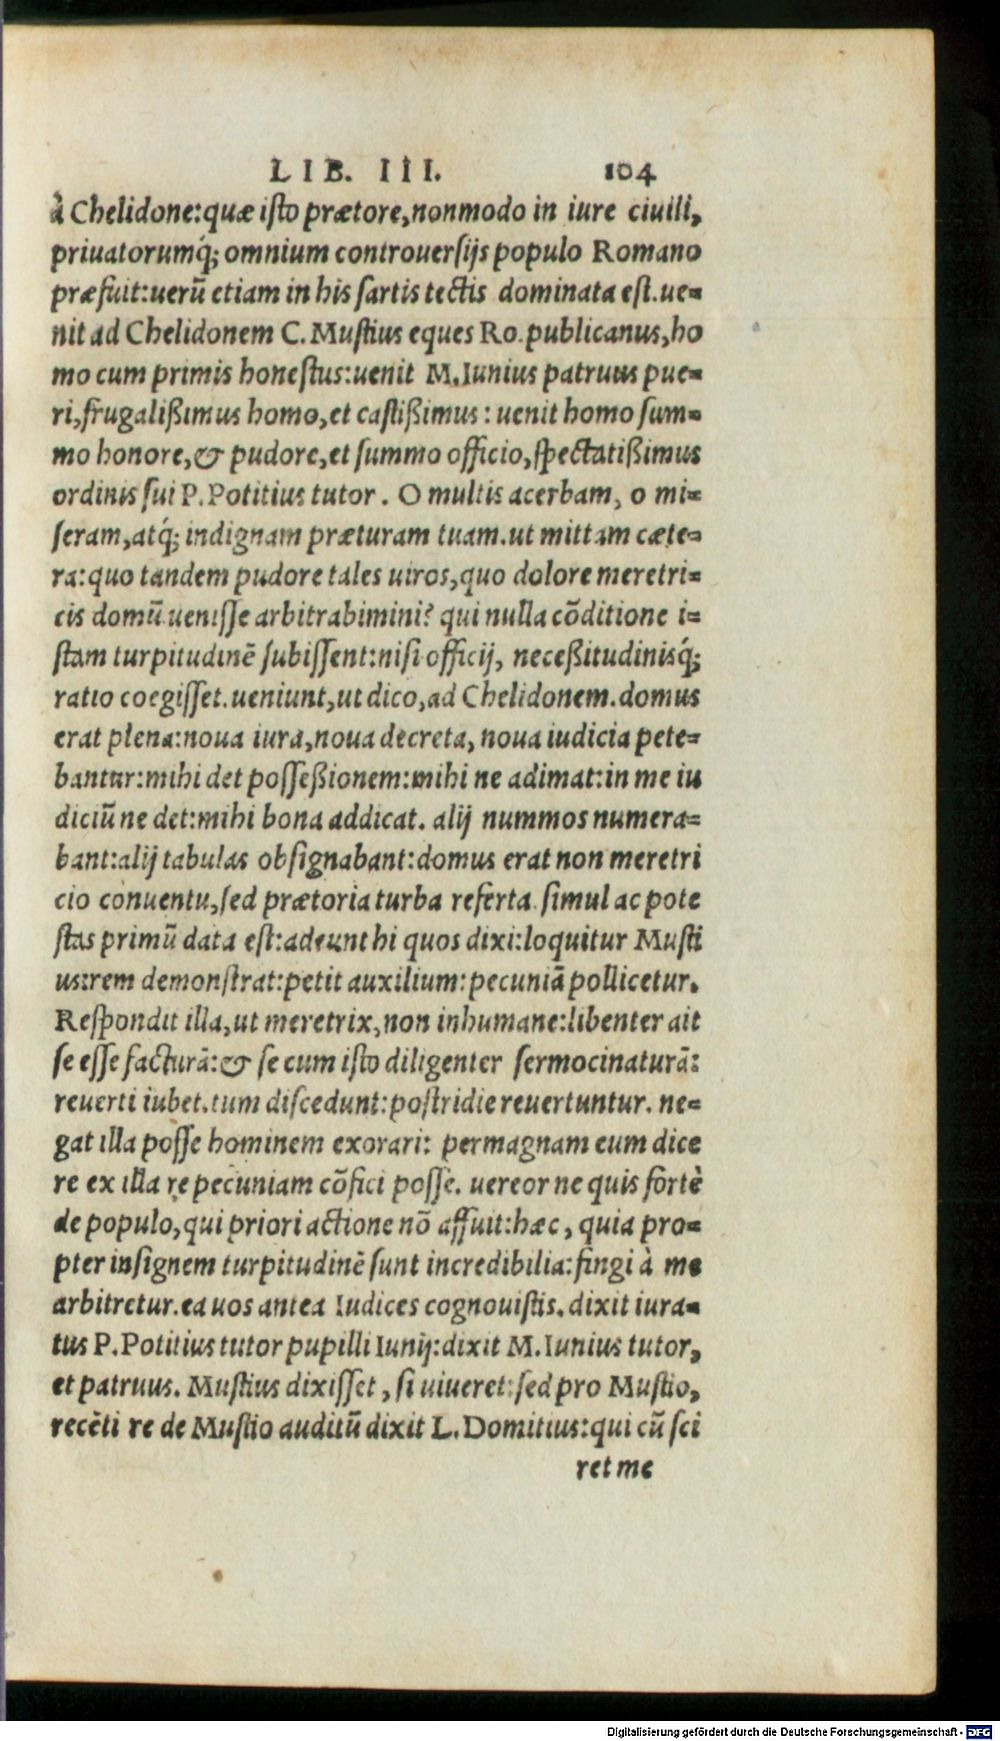 LIB. III. 104
à Chelidone:quæ isto prætore,nonmodo in iure ciuili,
priuatorumq́; omnium controuersijs populo Romano
præfuit:uerũ etiam in his sartis tectis dominata est.ue=
nit ad Chelidonem C.Mustius eques Ro.publicanus,ho
mo cum primis honestus:uenit M.Iunius patruus pue=
ri,frugalißimus homo,et castißimus: uenit homo sum=
mo honore,& pudore,et summo officio,spectatißimus
ordinis sui P.Potitius tutor. O multis acerbam, o mi=
seram,atq́; indignam præturam tuam.ut mittam cæte=
ra:quo tandem pudore tales uiros,quo dolore meretri=
cis domũ uenisse arbitrabimini? qui nulla cõditione i=
stam turpitudinẽ subissent:nisi officij, neceßitudinisq́;
ratio coegisset.ueniunt,ut dico,ad Chelidonem.domus
erat plena:noua iura,noua decreta, noua iudicia pete=
bantur:mihi det posseßionem:mihi ne adimat:in me iu
diciũ ne det:mihi bona addicat. alij nummos numera=
bant:alij tabulas obsignabant:domus erat non meretri
cio conuentu,sed prætoria turba referta. simul ac pote
stas primũ data est:adeunt hi quos dixi:loquitur Musti
us:rem demonstrat:petit auxilium:pecuniã pollicetur.
Respondit illa,ut meretrix,non inhumane:libenter ait
se esse facturã:& se cum isto diligenter sermocinaturã:
reuerti iubet.tum discedunt:postridie reuertuntur. ne=
gat illa posse hominem exorari: permagnam eum dice
re ex illa re pecuniam cõfici posse. uereor ne quis fortè
de populo,qui priori actione nõ affuit:hæc, quia pro=
pter insignem turpitudinẽ sunt incredibilia:fingi à me
arbitretur.ea uos antea Iudices cognouistis.dixit iura=
tus P.Potitius tutor pupilli Iunij:dixit M.Iunius tutor,
et patruus. Mustius dixisset, si uiueret:sed pro Mustio,
recẽti re de Mustio auditũ dixit L.Domitius:qui cũ sci
ret me
Digitalisierung gefördert durch die Deutsche Forschungsgemeinschaft - DFG